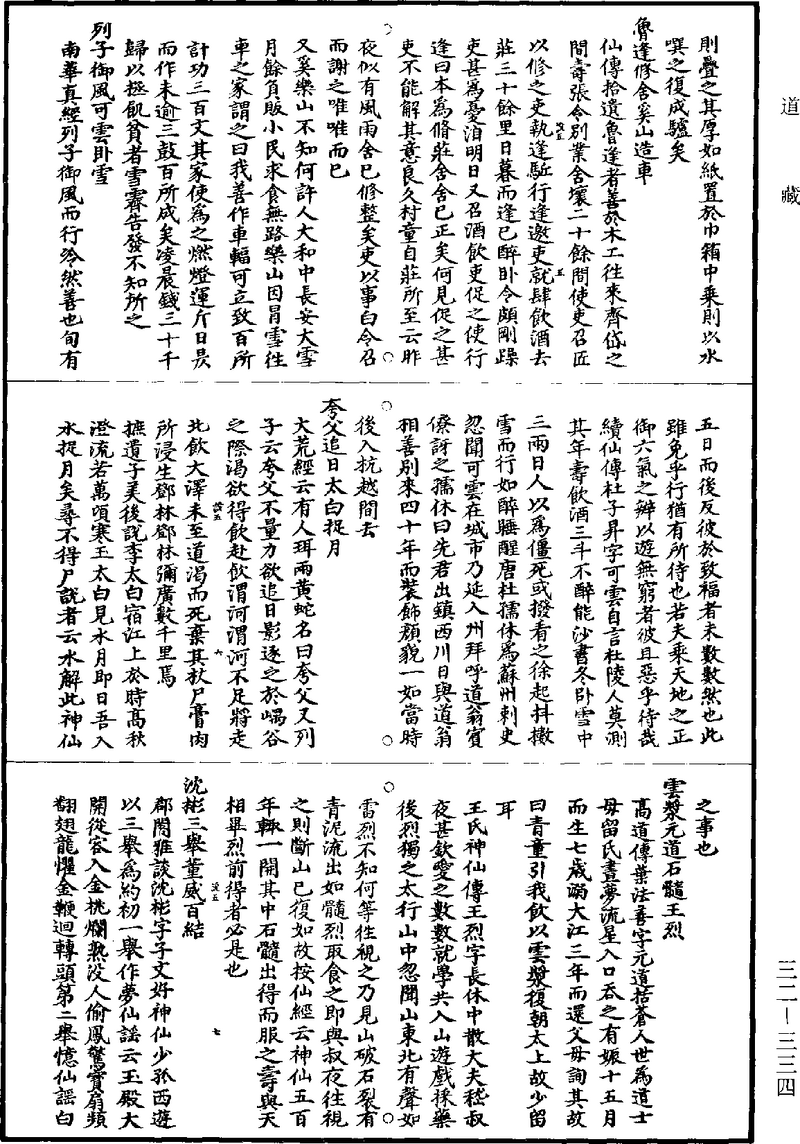 道藏
則疊之其厚如紙置於巾箱中乘則以水
噀之復成驢矣
魯逢修舍奚山造車
仙傳拾遺魯逢者善於木工往來齊岱之
間壽張令別業舍壞二十餘間使吏召匠
以修之吏執逢驅行逢邀吏就肆飲酒去
莊三十餘里日暮而逢已醉卧令頗剛躁
吏甚為憂洎明日又召酒飲吏促之使行
逢曰本為脩莊舍舍已正矣何見促之甚
吏不能解其意良久村童自莊所至云昨
夜似有風雨舍已修整矣吏以事白令召
而謝之唯唯而已
又奚樂山不知何許人大和中長安大雪
月餘負販小民求食無路樂山因冒雪往
車之家謂之曰我善作車輻可立致百所
計功三百文其家使為之燃燈運斤日昃
而作未逾三鼓百所成矣凌晨錢三十千
歸以拯飢貧者雪霽告發不知所之
列子御風可雲卧雪
南華真經列子御風而行泠然善也旬有
五
五日而後反彼於致福者未數數然也此
雖免乎行猶有所待也若夫乘天地之正
御六氣之辨以遊無窮者彼且惡乎待哉
續仙傳杜子昇字可雲自言杜陵人莫測
其年壽飲酒三斗不醉能沙書冬卧雪中
三兩日人以為僵死或撥看之徐起抖擻
雪而行如醉睡醒唐杜孺休為蘇州刺史
忽聞可雲在城市乃延入州拜呼道翁賓
僚訝之孺休曰先君出鎮西川日與道翁
相善別來四十年而裝飾顏貌一如當時
後入抗越間去
夸父追日太白捉月
大荒經云有人珥兩黃蛇名曰夸父又列
子云夸父不量力欲追日影逐之於嵎谷
之際渴欲得飲赴飲渭河渭河不足將走
北飲大澤未至道渴而死棄其杖尸膏肉
所浸生鄧林鄧林彌廣數千里焉
摭遺子美後說李太白宿江上於時高秋
澄流若萬頃寒玉太白見水月即曰吾入
水捉月矣尋不得尸說者云水解此神仙
六
之事也
雲漿元道石髓王烈
高道傳葉法善字元道括蒼人世為道士
母留氏晝夢流星入口吞之有娠十五月
而生七歲溺大江三年而還父母詢其故
曰青童引我飲以雲漿復朝太上故少留
耳
王氏神仙傳王烈字長休中散大夫嵇叔
夜甚欽愛之數數就學共入山遊戲採藥
後烈獨之太行山中忽聞山東北有聲如
雷烈不知何等往視之乃見山破石裂有
青泥流出如髓烈取食之即與叔夜往視
之則斷山已復如故按仙經云神仙五百
年輒一開其中石髓出得而服之壽與天
相畢烈前得者必是也
沈彬三舉董威百結
郡閣雅談沈彬字子文好神仙少孤西遊
以三舉為約初一舉作夢仙謠云玉殿大
開從容入金桃爛熟沒人偷鳳驚寶扇頻
翻翅龍懼金鞭迴轉頭第二舉憶仙謠白
七
三二—三三四